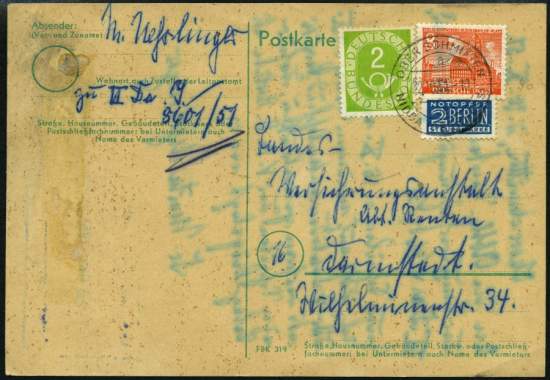 Absender:
(Vor- und Zuname)
M. Nehrlinger
Wohnort, auch Zustell- oder Leitpostamt
zu II De 19/
8601/51
Straße, Hausnummer, Gebäudeteil,
Postschließfachnummer; bei Untermietern auch
Name des Vermieters
Postkarte
2
DEUTSCHE
BUNDESPOST
OBER-SCHMITTEN
NOTOPFER
2 BERLIN
STEUERMARKE
Landes-
Versicherungsanstalt
Abt. Renten
16
Darmstadt.
Wilhelminenstr. 34.
Straße, Hausnummer, Gebäudeteil, Stockw. oder Postschließ-
fachnummer; bei Untermietern auch Name des Vermieters
FBK 319